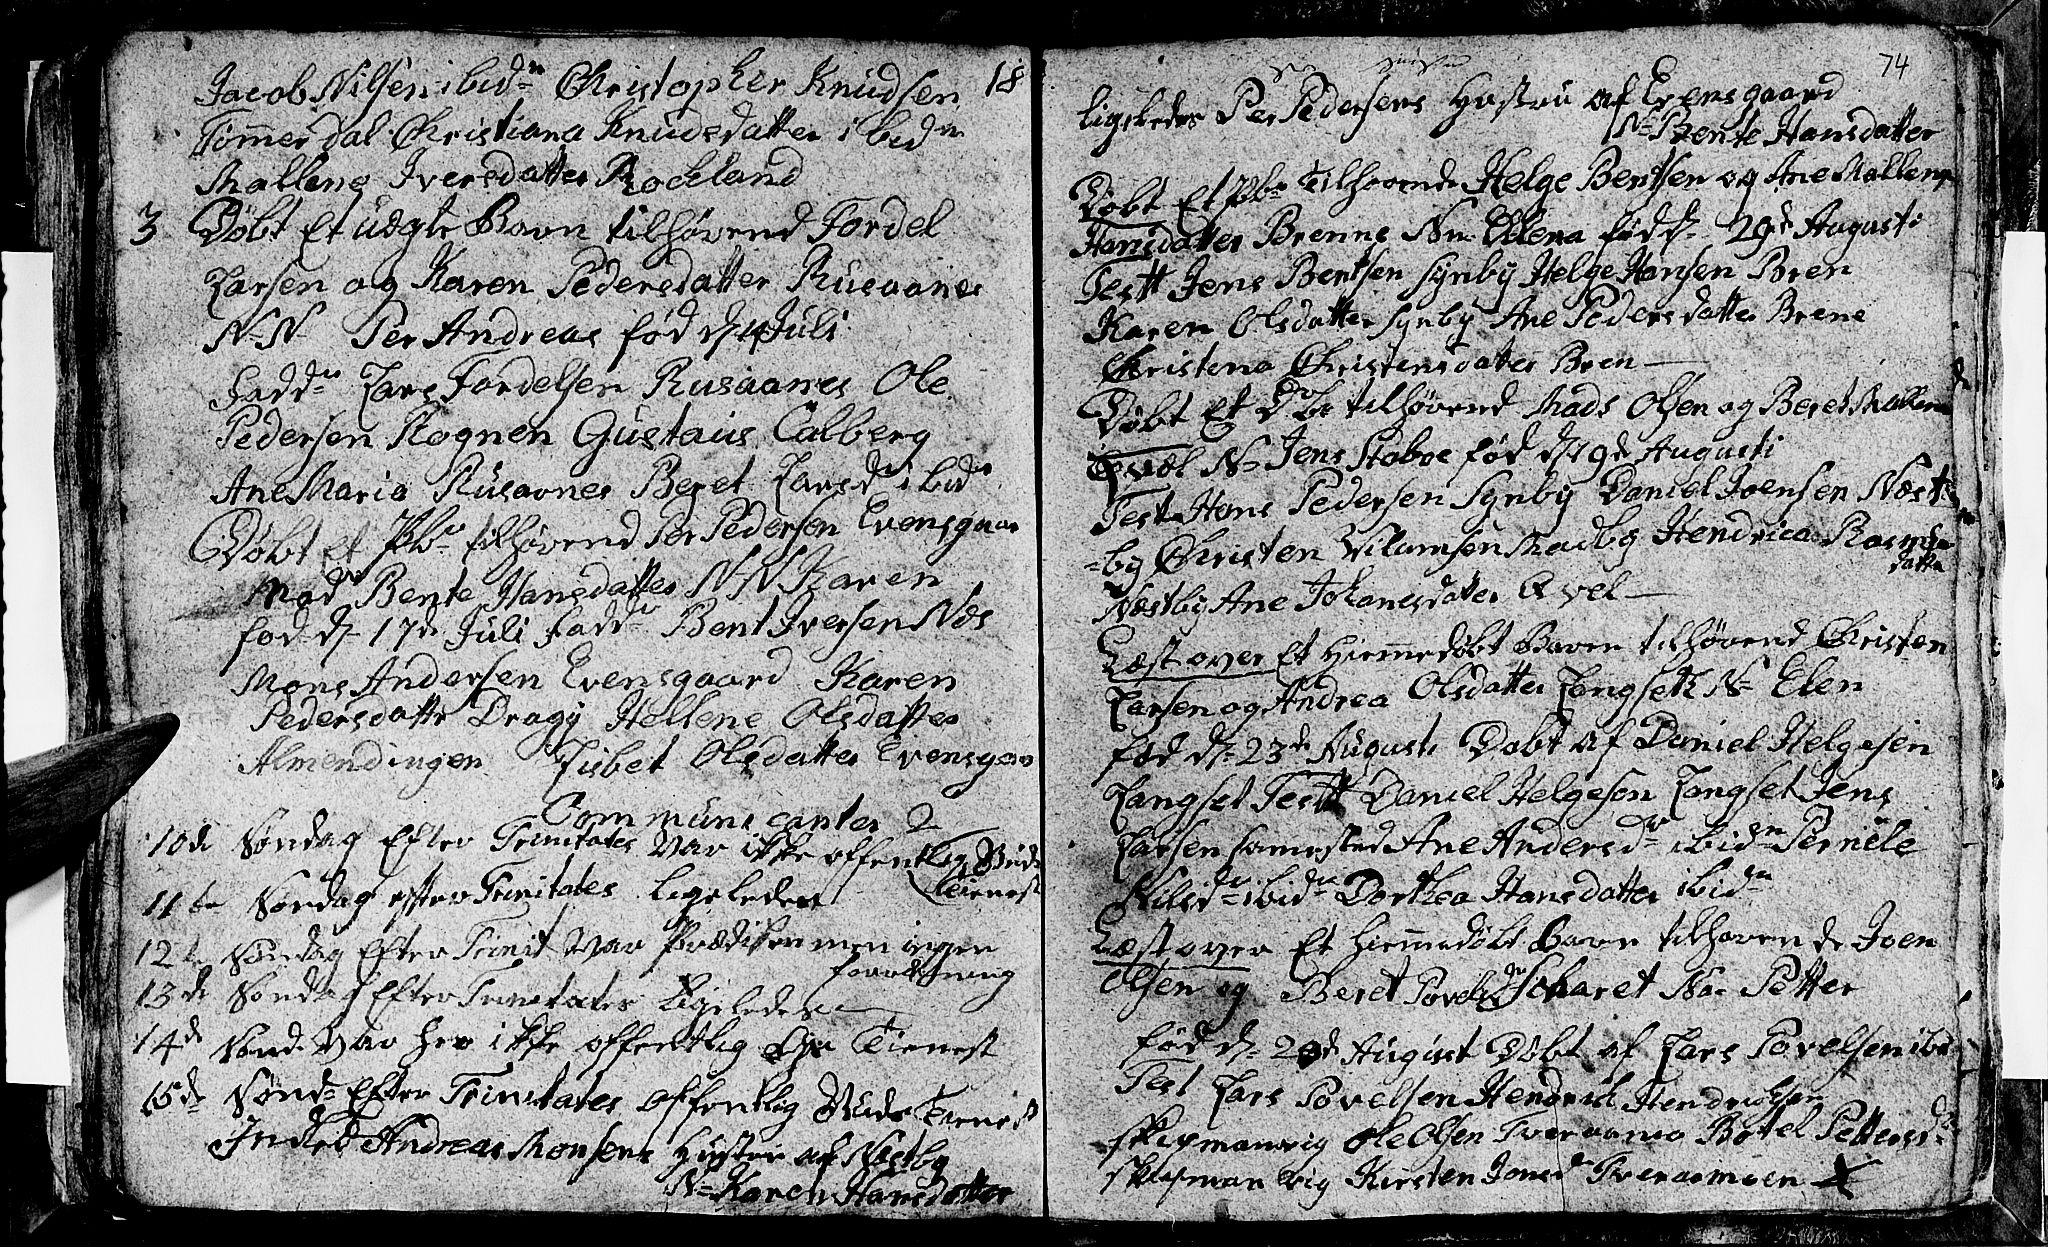 Jacob Nilsen ibidn Christopher Knudsen 18
Tømmerdal Christiana Knudsdatter ibidm
Mallene Iversdatter Rockland
3 Døbt Et udgte Barn tilhørend Fordel
Larsen og Karen Pedersdatter Rusaanes
N-N Per Andreas fød d 4 Juli
Faddr Lars Fordelsen Rusaanes Ole
Pedersen Rognen Gustaus Calberg
Ane Maria Rusaanes Beret Larsdr ibidn
Døbt et Pbr tilhørend Per Pedersen Evensgaar
Mod Bente Hansdatter N-N Karen
fød d- 17de Juli Faddr Bent Iversen Næs
Mons Andersen Evensgaard Karen
Pedersdattr Dragy Hellene Olsdatter
Almendingen Lisbet Olsdatter Evensgaar
Communicanter 2
10de Søndag Efter Trinitates var ikke offentlig Guds
Tienest
11te Søndag efter Trinitates ligeledes
12te Søndag Efter Trinit var Prædiken men ingen
forretning
13de Søndag Efter Trinitates Ligeledes
14de Sønd var her ikke offentlig Gu Tienest
15de Sønd- Efter Trinitates offentlig Guds Tienest
Indled Andreas Monsens Hustru af Næstby
N= Karen Hansdatter
74
ligeledes Per Pedersens Hustru af Evensgaard
N= Bente Hansdatter
Døbt Et Pbr tilhørende Helge Bentsen og Ane Mallena
Hansdatter Brenne Nn Ellena fød d- 29de Augusti
Testt Jens Bentsen Synby Helge Hansen Bren
Karen Olsdatter Synby Ane Pedersdatter Brene
Christena Christensdatter Bren
Døbt Et Dbr tilhørend Mads Olsen og Beret Mallena
Qvæl N- Jens Staboe fød d 19de Augusti
Test Hans Pedersen Synby Daniel Joensen Næst
=by Christen Vilumsen Nadby Hendrica Rasmus
datter
Næstby Ane Johansdatter Qvel
Læst over Et Hiemmedøbt Barn tilhørend Christen
Larsen og Andrea Olsdatter Langseth N= Elen
fød d- 23de Augusti Døbt af Daniel Helgesen
Langset Testt Daniel Helgesen Langset Jens
Larsen sammested Ane Andersdr ibidn Pernele
Nilsdr ibidn Dorthea Hansdatter ibidn
Læst over Et Hiemmedøbt Barn tilhørende Joen
Olsen og Beret Povelsdr Scharet Nn- Petter
fød d- 20de August Døbt af Lars Povelsen ibd
Test Lars Povelsen Hendrich Hendrichsen
Skipmanvig Ole Olsen Tveraamo Botel Pettersdr
Skipmanvig Kirsten Jonsd Tveraamoen